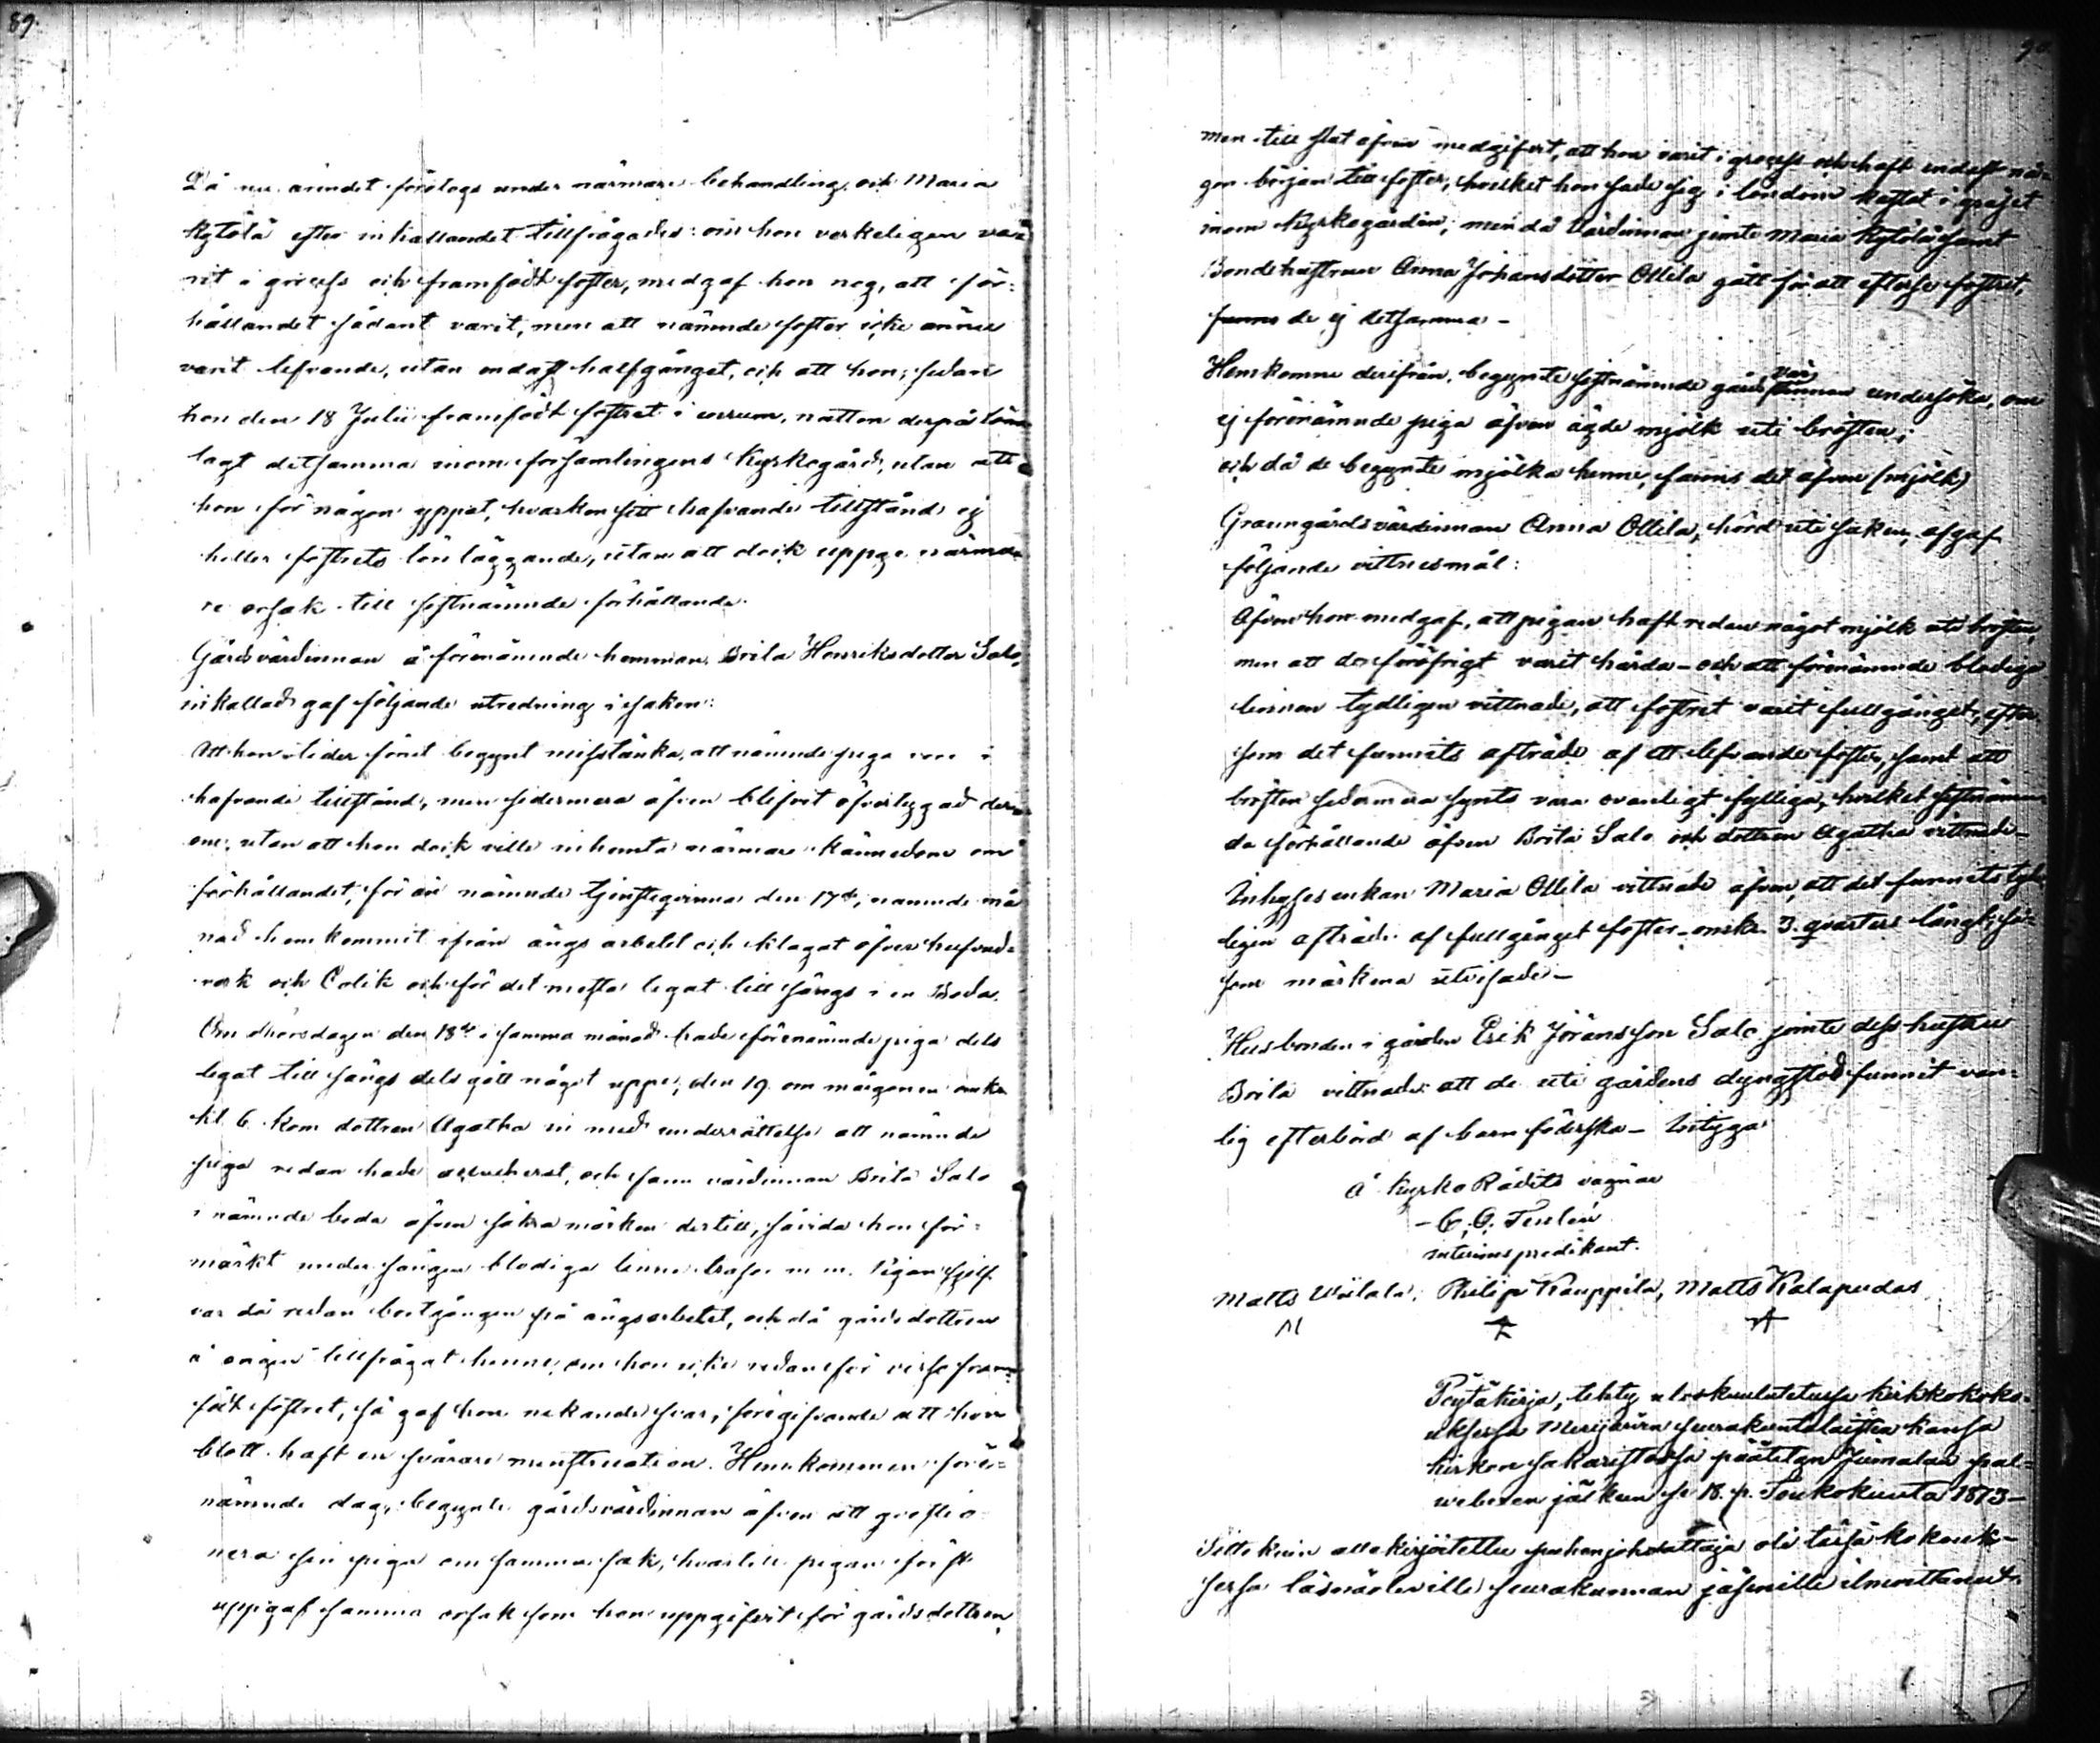 89.
Då nu ärendet företogs under närmare behandling och Maria
Kytölä efter inkallandet tillfrågades: om hon verkeligen va-
rit i grossess och framfödt foster, medgaf hon nog, att för-
hållandet sådant varit, men att nämnde foster icke ännu
varit lefvande, utan endast halfgånget, och att hon, sedan
hon den 18 Julii framfödt fostret i uterum, natten derpå lön-
lagt detsamma inom församlingens Kyrkogård, utan att
hon för någon yppat, hvarken sitt hafvande tillstånd ej
heller fostrets lönläggande, utan att dock uppge närma-
re orsak till sistnämnde förhållande.
Gårdsvärdinnan å förenämnde hemman Brita Henriksdotter Salo,
inkallad gaf följande utredning i saken:
Att hon tider förut begynt misstänka, att nämnde piga vore i
hafvande tillstånd, men sedermera äfven blifvit öfvertygad der-
om, utan att hon dock ville inhemta närmare kännedom om
förhållandet, för än nämnde tjenstegvinna den 17de, nämnde må-
nad hemkommit ifrån ängs arbetet och klagat öfver hufvud-
verk och Colik och för det mesta legat till sängs i en Boda.
Om thorsdagen den 18de i samma månad hade förenämnde piga dels
legat till sängs dels gått något uppe; den 19 om morgonen omkr.
kl. 6 kom dottren Agatha in med underrättelse att nämnde
piga redan hade accucherat, och fann värdinnan Brita Salo
i nämnde boda äfven säkra märken dertill, särida hon för-
märkt under sängen blodiga linne trasor m. m. Pigan sjelf
var då redan bortgången på ängsarbetet, och då gårdsdottren
å vägen tillfrågat henne, om hon icke redan för visso fram-
födt fostret, så gaf hon nekande svar, föregifvande att hon
blott haft en svårare menstruation. Hemkommen före-
nämnde dag, begynte gårdsvärdinnan äfven att qvestio-
nera sin piga om samma sak, hvartill pigan först
uppgaf samma orsak som hon uppgifvit för gårdsdottren,
90.
men till slut äfven medgifvit, att hon varit i grossess och haft endast nå-
gon början till foster, hvilket hon sade sig i löndom kastat i gräset
inom Kyrkogården; men då Värdinnan jemte Maria Kytölä samt
Bondehustrun Anna Johansdotter Ollila gått för att efterse fostret,
funno de ej detsamma –
Hemkomne derifrån, begynte sistnämnde gårds vär-
dinnan undersöka, om
ej förenämnde piga äfven ägde mjölk uti brösten;
och då de begynte mjölka henne, fanns det äfven (mjölk)
Granngårdsvärdinnan Anna Ollila, hörd uti saken, afgaf
följande vittnesmål:
Äfven hon medgaf, att pigan haft redan något mjölk uti brösten,
men att de för öfrigt varit hårda – och att förenämnde blodiga
linnen tydligen vittnade, att fostret varit fullgånget, efter
som det funnits afträde af ett lefvande foster, samt att
brösten sedermera synts vara ovanligt fylliga, hvilket sistnämn-
da förhållande äfven Brita Salo och dottren Agatha vittnade –
Inhyses enkan Maria Ollila vittnade äfven, att det funnits tyd-
ligen afträde af fullgånget foster – omkr. 3 qvarter långt, så-
som märkena utvisade –
Husbonden i gården Erik Jöransson Salo jemte dess hustru
Brita vittnade: att de uti gårdens dyngstod funnit van-
lig efterbörd af barnföderska – Intyga
Å Kyrko Rådets vägnar
– C. G. Terlén
interimspredikant.
Matts Wiilala, Philip Kauppila, Matts Kalapudas
Pöytäkirja, tehty uloskuulutetussa kirkkokoko-
uksessa Merijärven seurakuntalaisten kanssa
kirkon sakaristossa päätetyn Jumalan pal-
weluxen jälkeen se 18. p. Toukokuuta 1873 –
Sitte kuin allekirjoitettu puheenjohdattaja oli tässä kokouk-
sessa läsnäoleville seurakunnan jäsenille ilmoittanut,